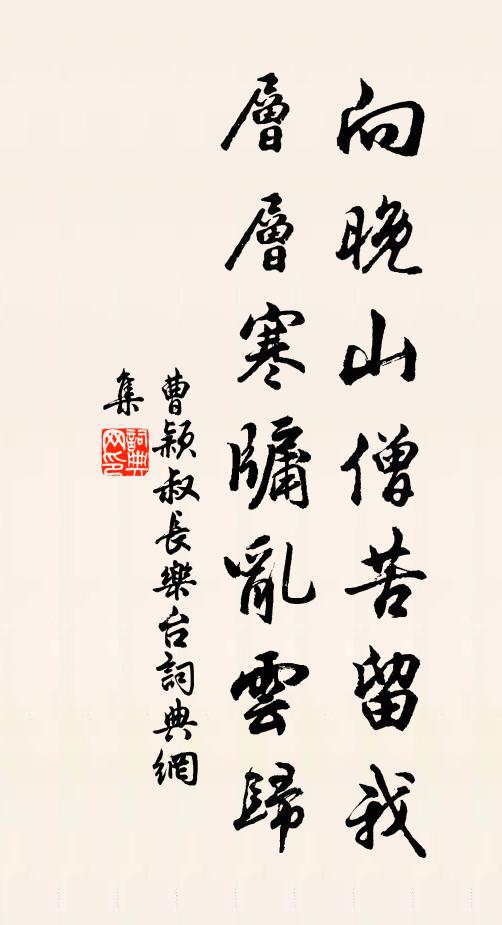 向晚山僧苦留我
層層寒牖亂雲歸
曹穎叔長樂台詞典網
集
詞典網印